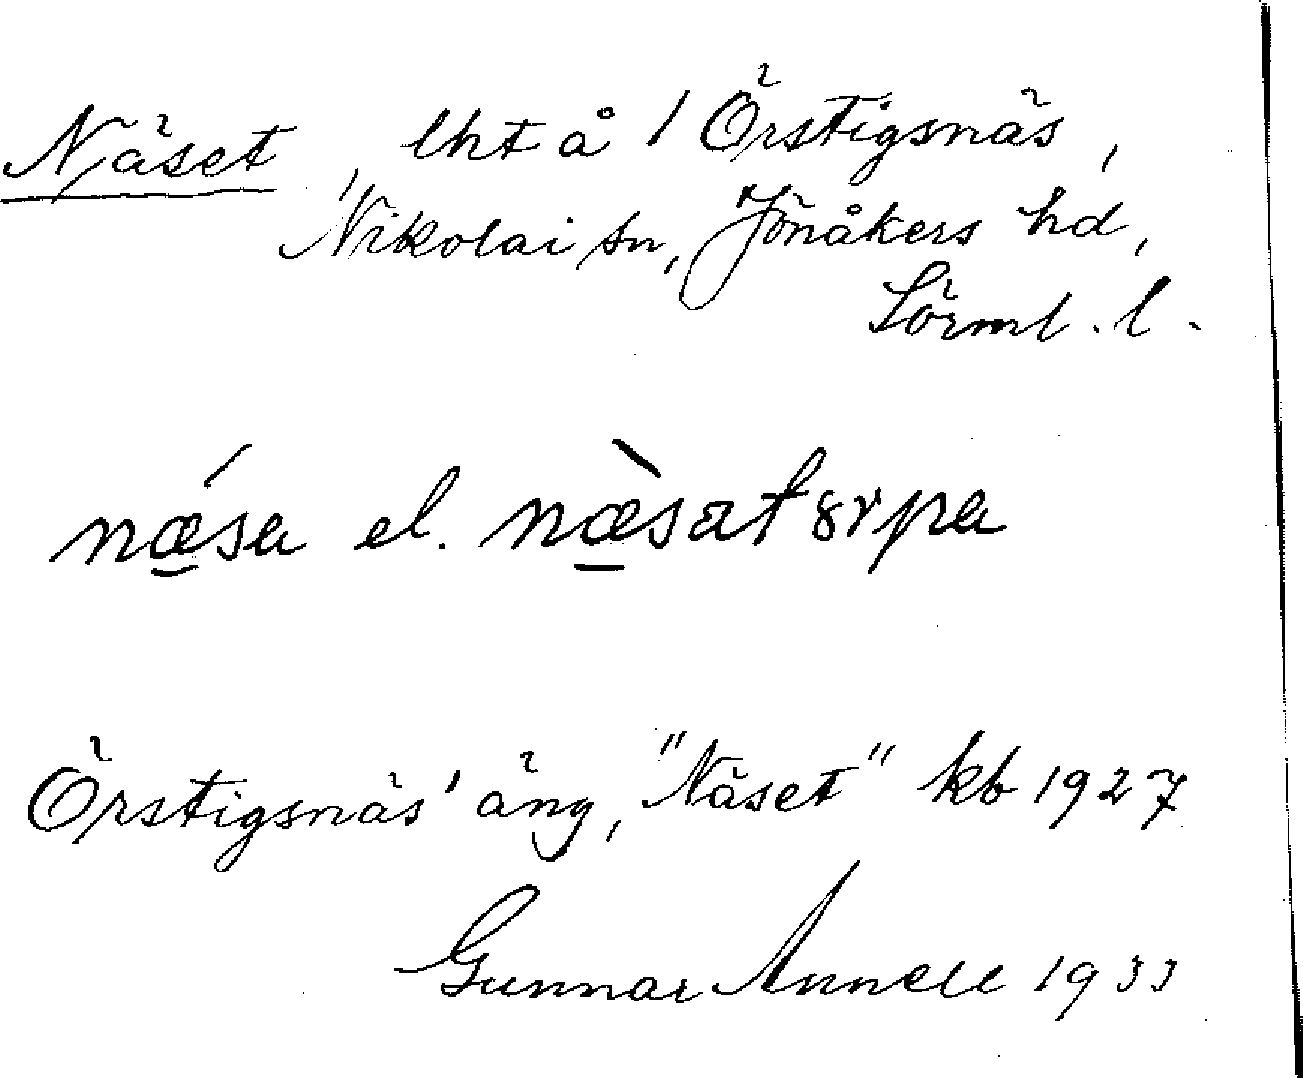 Näset, lht å / Örstigsnäs,
Nikolai sn, Jönåkers hd,
Sörml. l.
nǽ̲sa el. næ̲̀sat
Örstigsnäs' äng, "Näset" kb 1927
Gunnar Annell 1933